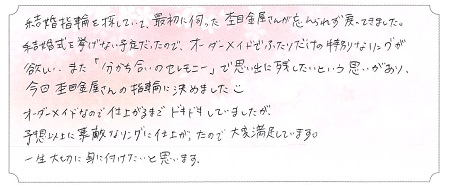 結婚指輪を探していて、最初に伺った杢目金屋さんが忘れられず戻ってきました。
結婚式を挙げない予定だったので、オーダーメイドでふたりだけの特別なリングが
欲しい、また「分かち合いのセレモニー」で思い出に残したいという思いがあり、
今回杢目金屋さんの指輪に決めました
オーダーメイドなので仕上がるまでドキドキしていましたが、
予想以上に素敵なリングに仕上がったので大変満足しています。
一生大切に身に付けたいと思います。